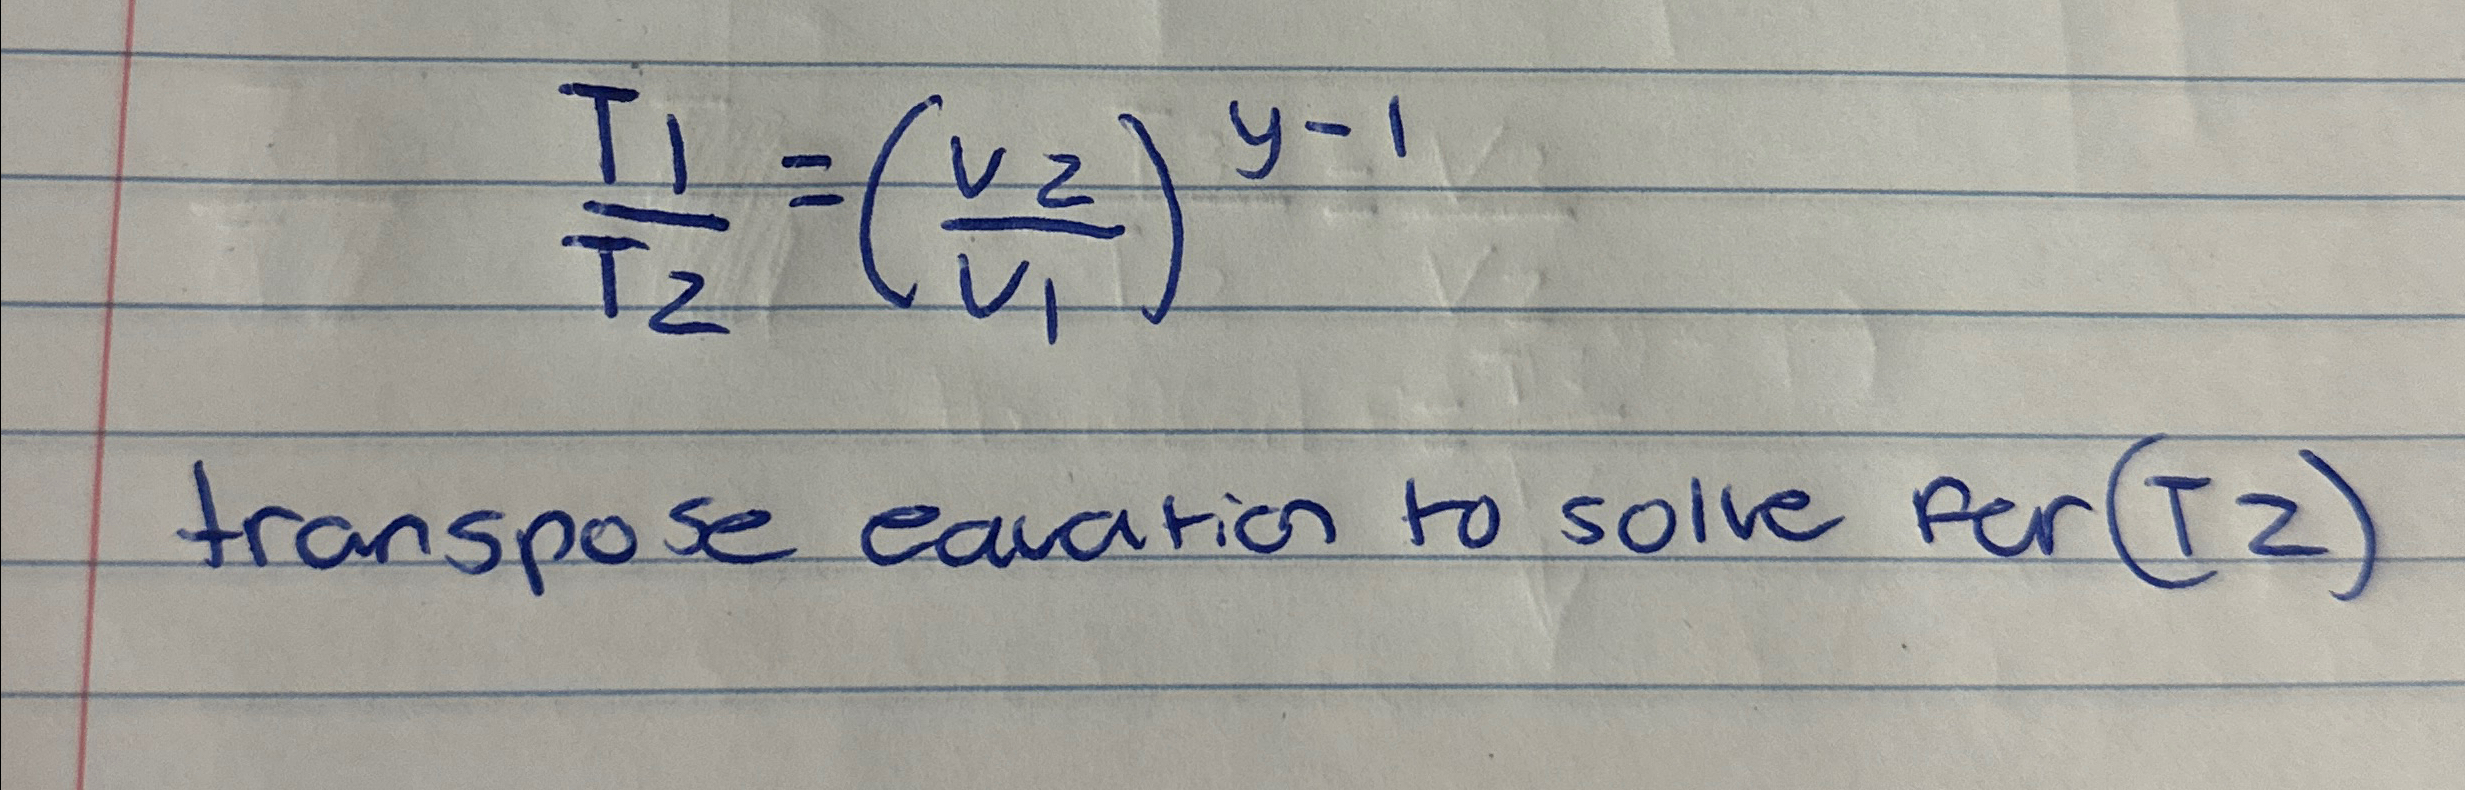 T1/T2 = (V2/V1)^y-1
transpose equation to solve for (T2)